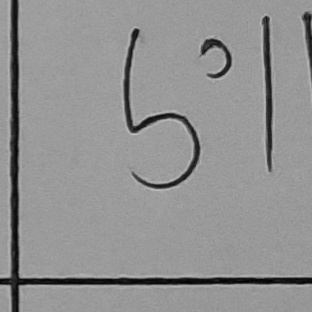 5°1